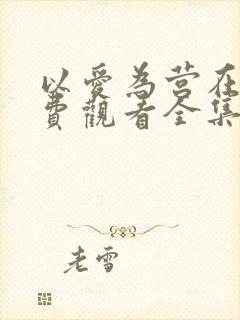 以愛為营在
費觀看全集
老雪